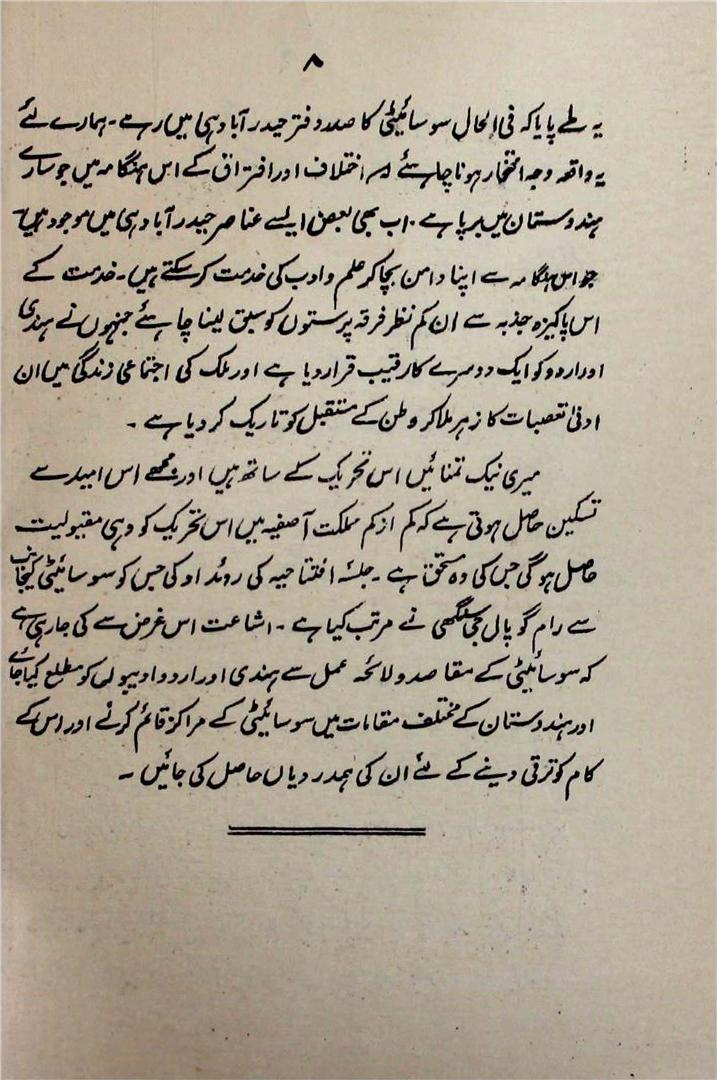 ۸
یہ طے پایا کہ فی الحال سوسائیٹی کا صدر دفتر حیدرآباد ہی میں رہے ۔ ہمارے لئے
یہ واقعہ وجہ افتخار ہونا چاہئے اس اختلاف اور افتراق کے اس ہنگامہ میں جو سارے
ہندوستان میں برپا ہے ۔ اب بھی بعض ایسے عناصر حیدرآباد ہی میں موجود ہیں
جو اس ہنگامہ سے اپنا دامن بچا کر علم و ادب کی خدمت کر سکتے ہیں ۔ خدمت کے
اس پاکیزہ جذبہ سے ان کم نظر فرقہ پرستوں کو سبق لینا چاہئے جنہوں نے ہندی
اور اردو کو ایک دوسرے کا رقیب قرار دیا ہے اور ملک کی اجتماعی زندگی میں ان
ادنیٰ تعصبات کا زہر ملا کر وطن کے مستقبل کو تاریک کر دیا ہے ۔
میری نیک تمنائیں اس تحریک کے ساتھ ہیں اور مجھے اس امید سے
تسکین حاصل ہوتی ہے کہ کم از کم مملکت آصفیہ میں اس تحریک کو وہی مقبولیت
حاصل ہوگی جس کی وہ مستحق ہے ۔ جلسۂ افتتاحیہ کی روئداد کی جس کو سوسائیٹی کیجانب
سے رام گوپال جی سنگھی نے مرتب کیا ہے ۔ اشاعت اس غرض سے کی جا رہی ہے
کہ سوسائیٹی کے مقاصد و لائحہ عمل سے ہندی اور اردو ادیبوں کو مطلع کیا جائے
اور ہندوستان کے مختلف مقامات میں سوسائیٹی کے مراکز قائم کرنے اور اس کے
کام کو ترقی دینے کے لئے ان کی ہمدردیاں حاصل کی جائیں ۔